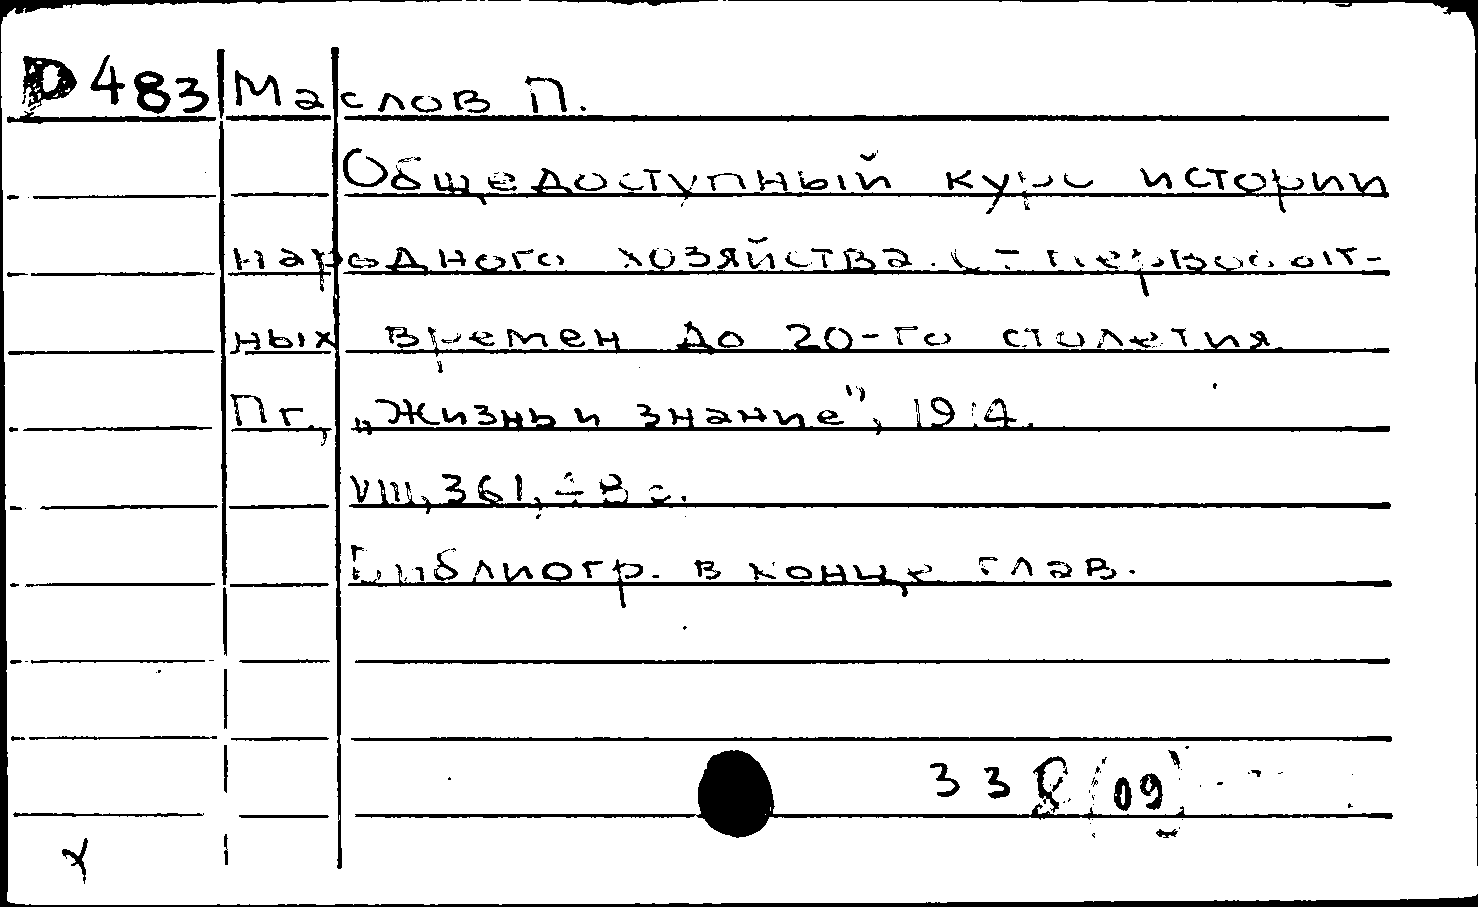 D483 Маслов П.
Общедоступный курс истории
народного хозяйства. От первобыт-
ных времен до 20-го столетия
Пг., „Жизнь и знание", 1914.
VIII, 361, с.
Библиогр. в конце глав.
338(09)